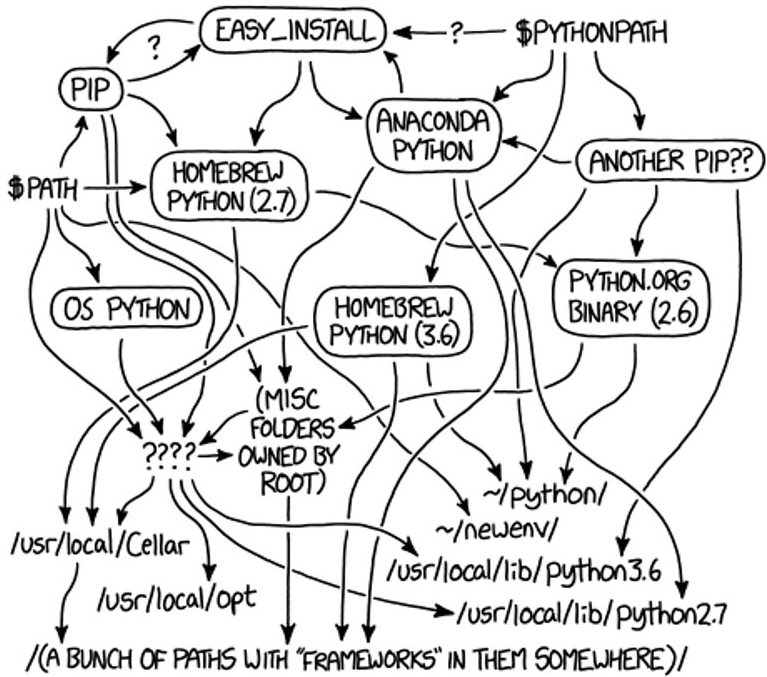 EASY_INSTALL
? $PYTHONPATH
?
PIP
ANACONDA
PYTHON
ANOTHER PIP??
HOMEBREW
PYTHON (2.7)
$PATH
OS PYTHON
HOMEBREW
PYTHON (3.6)
PYTHON.ORG
BINARY (2.6)
(MISC
FOLDERS
OWNED BY
ROOT)
????
~/python/
~/newenv/
/usr/local/Cellar
/usr/local/lib/python3.6
/usr/local/opt
/usr/local/lib/python2.7
/(A BUNCH OF PATHS WITH "FRAMEWORKS" IN THEM SOMEWHERE)/